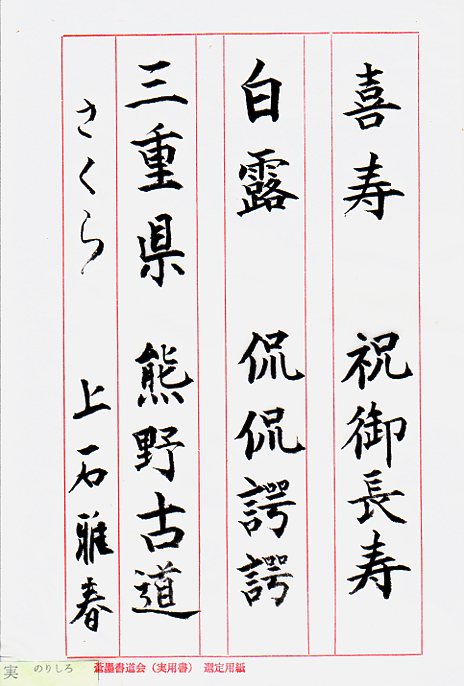 喜寿 祝御長寿
白露 侃侃諤諤
三重県 熊野古道
さくら 上石雅春
実 のりしろ 蒼墨書道会（実用書） 選定用紙